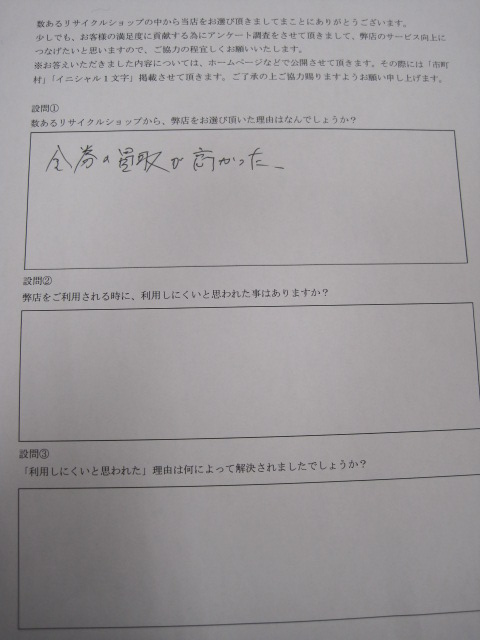 数あるリサイクルショップの中から当店をお選び頂きましてまことにありがとうございます。
少しでも、お客様の満足度に貢献する為にアンケート調査をさせて頂きまして、弊店のサービス向上に
つなげたいと思いますので、ご協力の程宜しくお願いいたします。
※お答えいただきました内容については、ホームページなどで公開させて頂きます。その際には「市町
村」「イニシャル１文字」掲載させて頂きます。ご了承の上ご協力賜りますようお願い申し上げます。
設問①
数あるリサイクルショップから、弊店をお選び頂いた理由はなんでしょうか？
金券の買取が高かった。
設問②
弊店をご利用される時に、利用しにくいと思われた事はありますか？
設問③
「利用しにくいと思われた」理由は何によって解決されましたでしょうか？